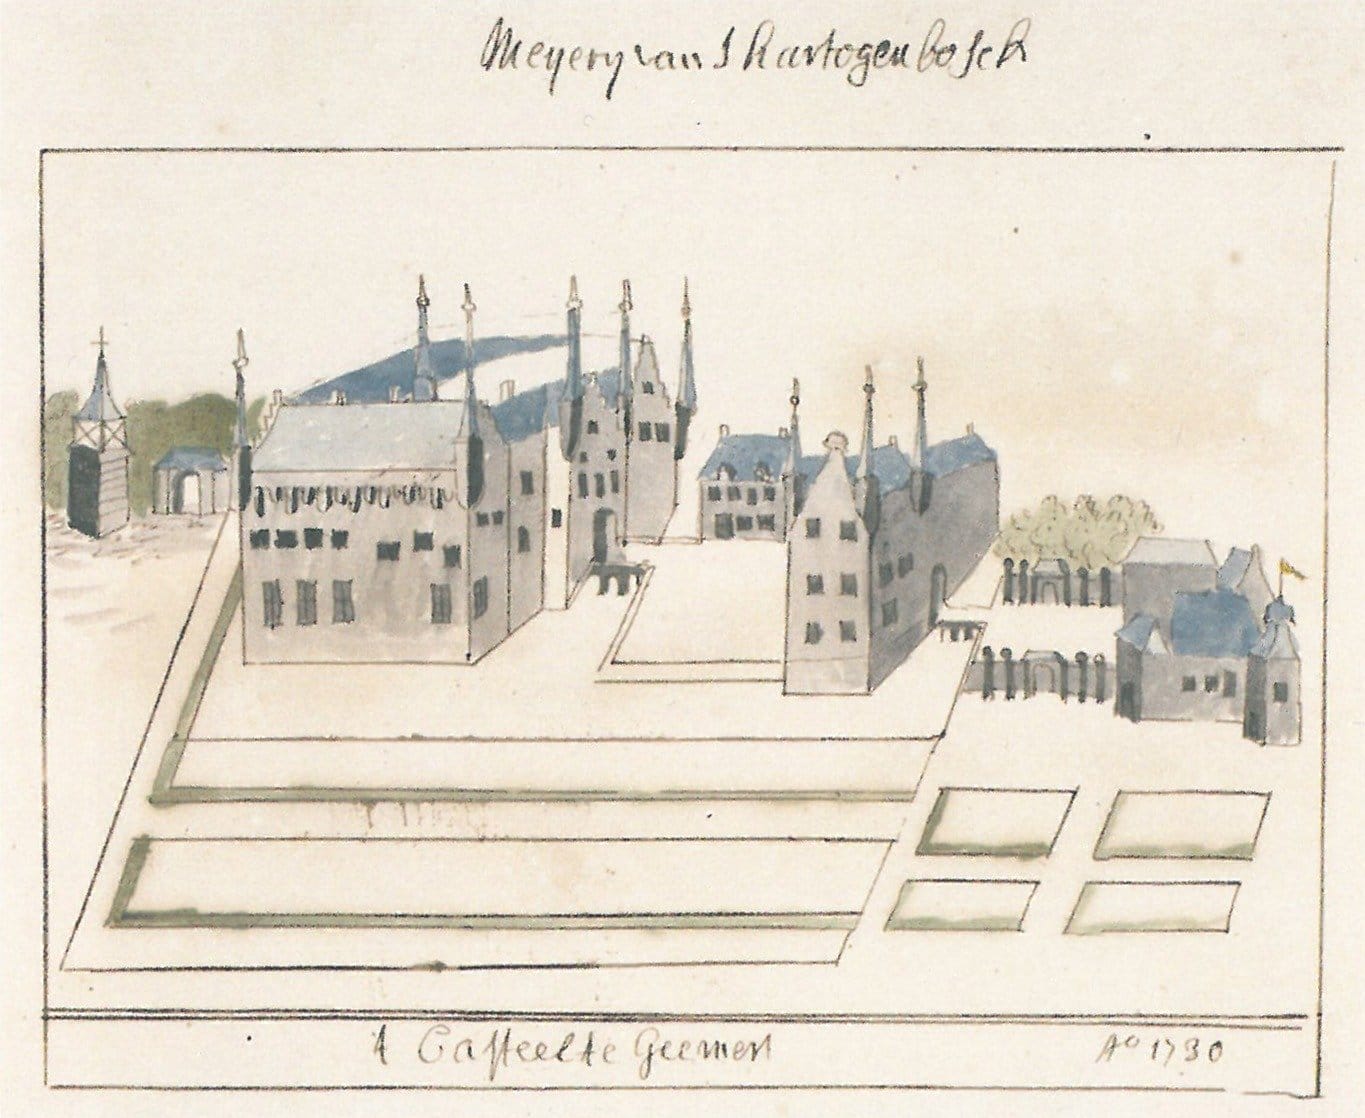 Meyery van S hartogenbosch
't Casteel te Geemert
Ao 1730